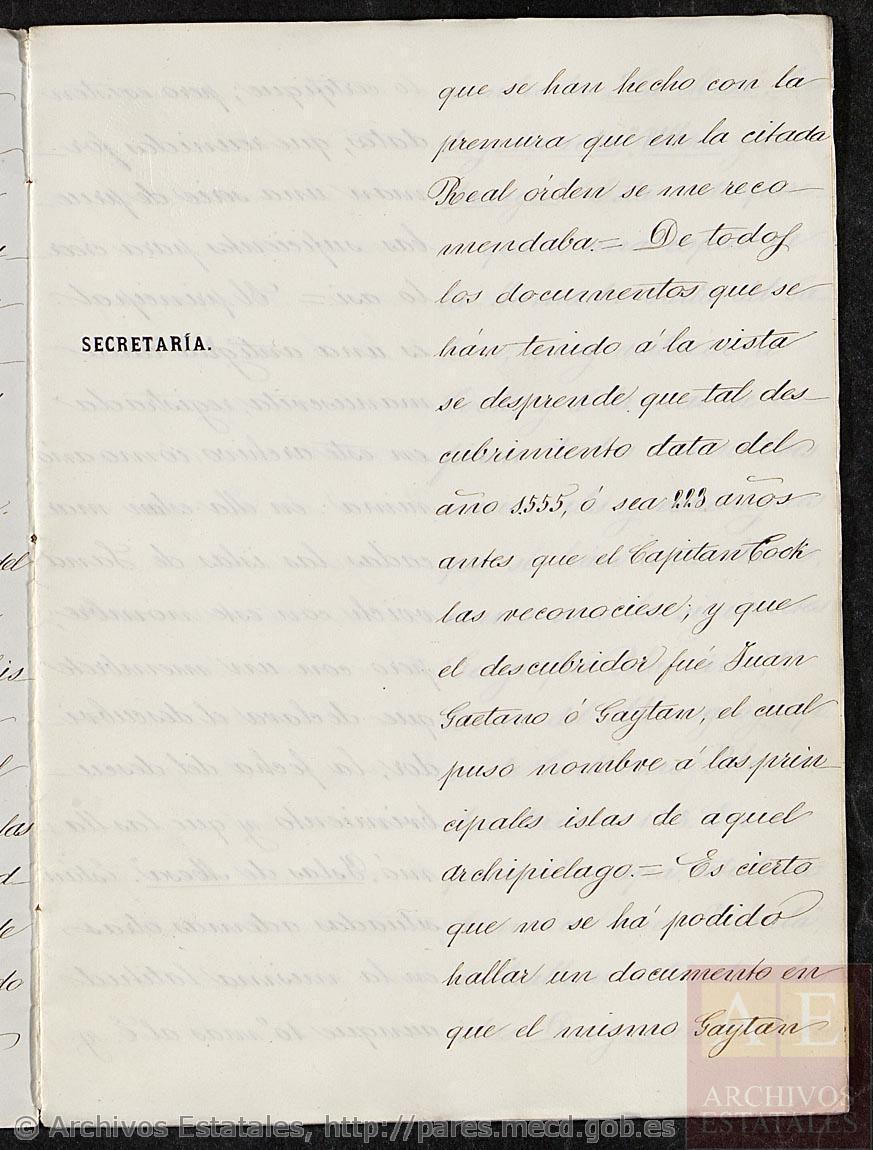 que se han hecho con la
premura que en la citada
Real órden se me reco-
mendaba.= De todos
los documentos que se
SECRETARÍA.
hán tenido á la vista
se desprende que tal des-
cubrimiento data del
año 1.555, ó sea 223 años
antes que el Capitan Cook
las reconociese; y que
el descubridor fué Juan
Gaetano ó Gaytan, el cual
puso nombre á las prin-
cipales islas de aquel
archipielago.= Es cierto
que no se há podido
hallar un documento en
que el mismo Gaytan
AE
ARCHIVOS
ESTATALES
© Archivos Estatales, http://pares.mecd.gob.es